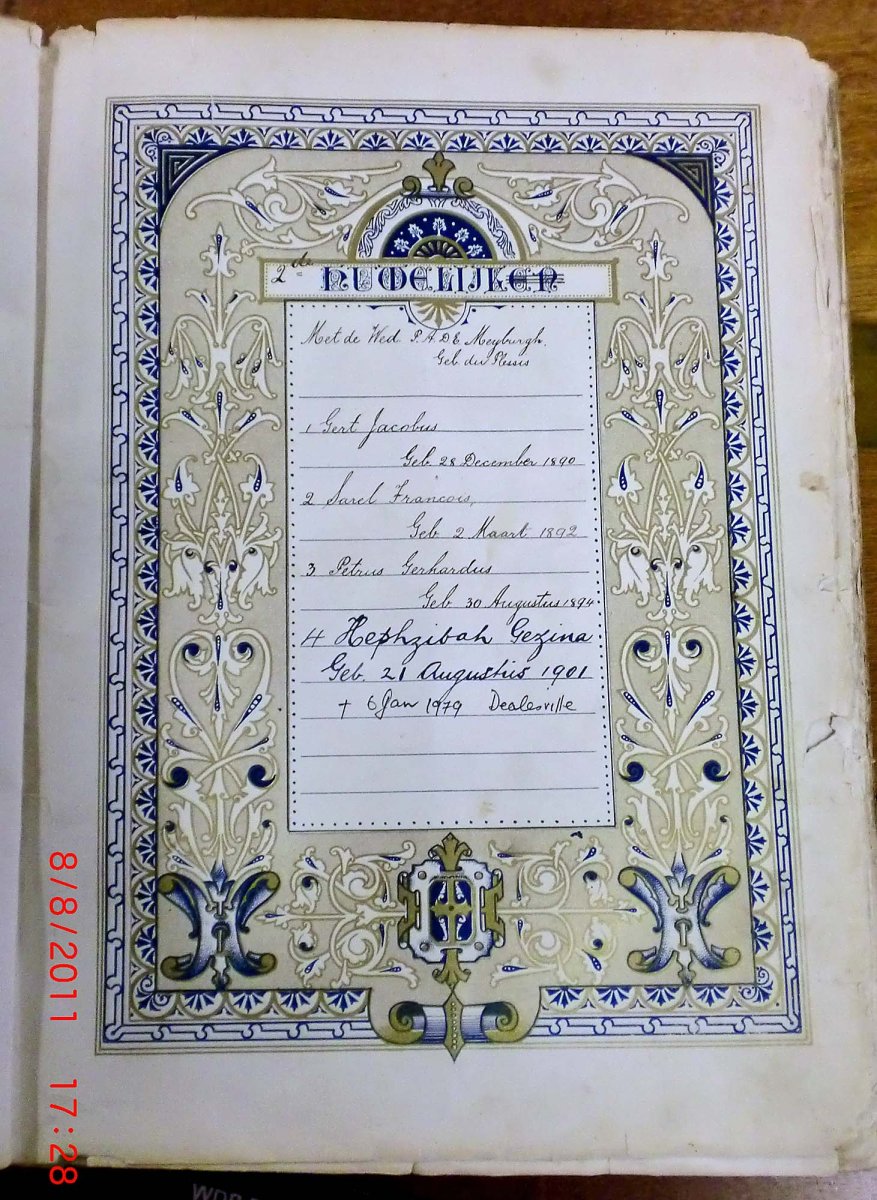 2de HUWELIJKEN
Met de Wed. P. A. D E Meyburgh.
Geb. du Plessis
1 Gert Jacobus
Geb. 28 December 1890
2 Sarel Francois,
Geb 2 Maart 1892
3 Petrus Gerhardus
Geb 30 Augustus 1894
4 Hephzibah Gezina
Geb. 21 Augustus 1901
† 6 Jan 1979 Dealesville
8/8/2011 17:28